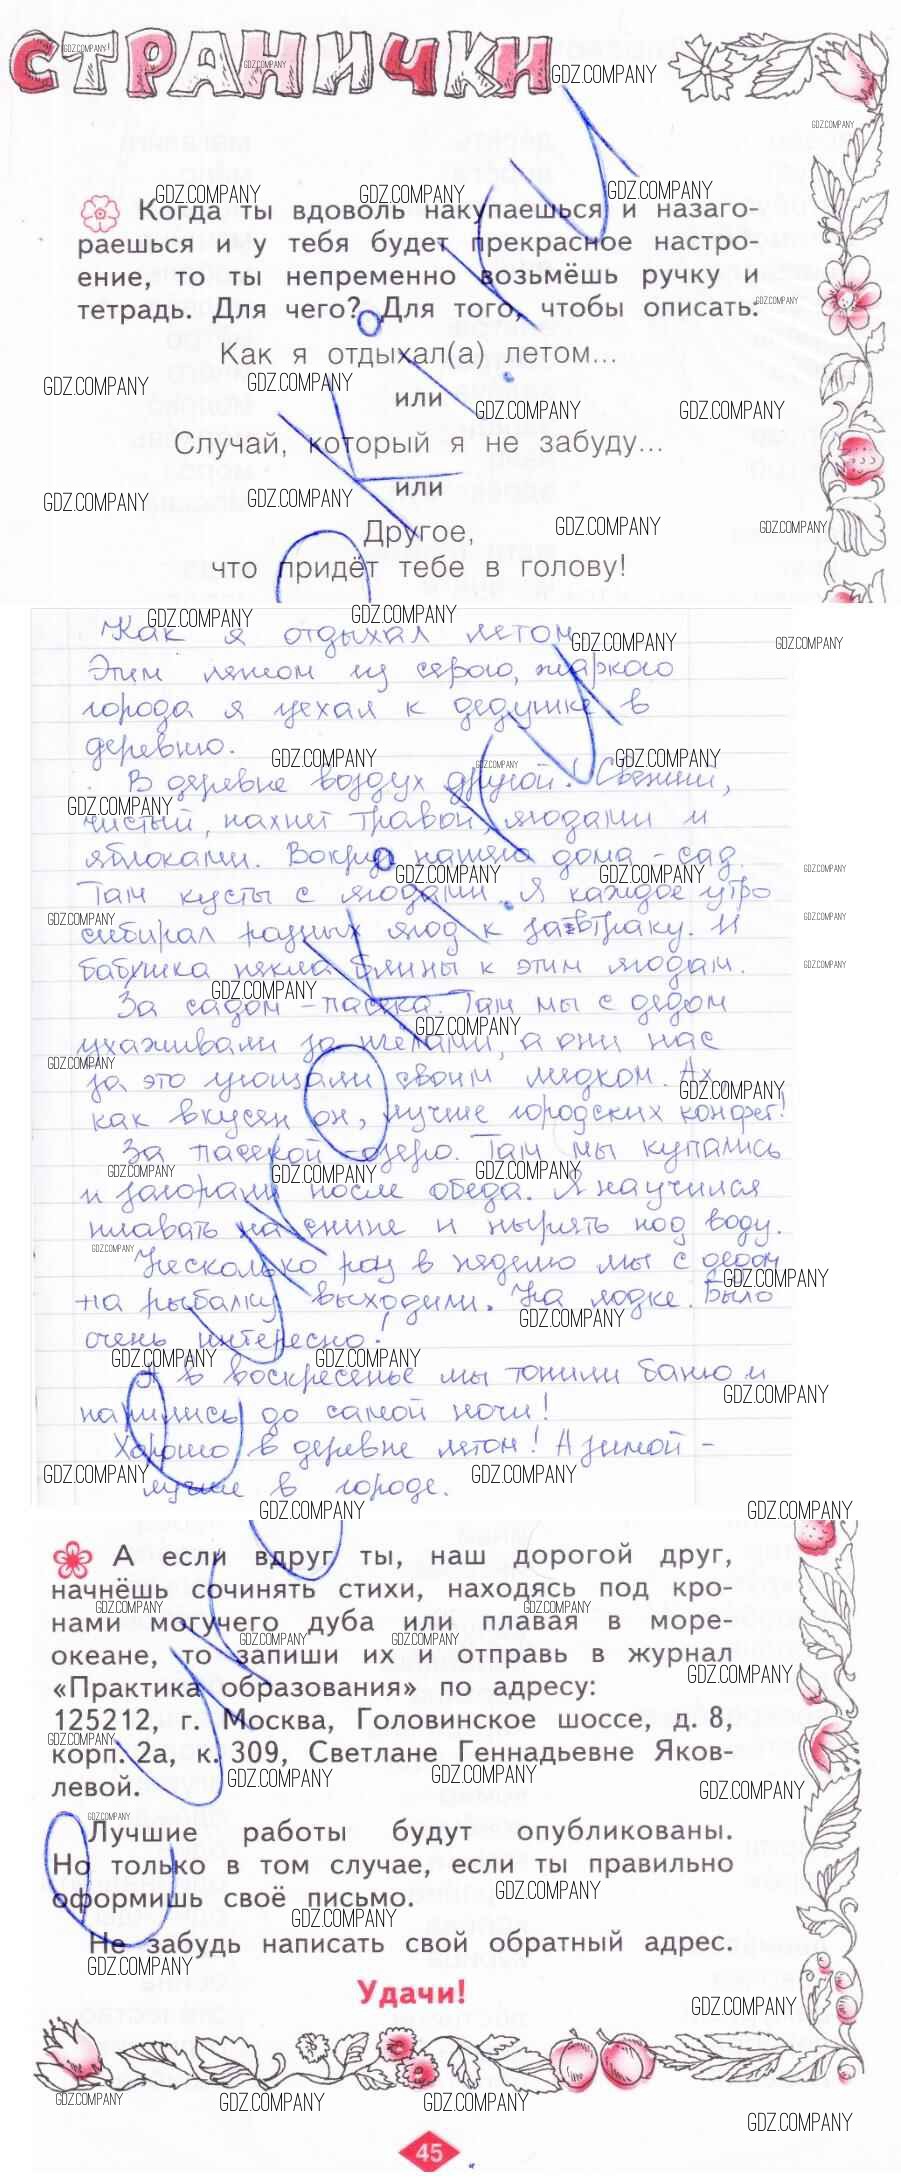 СТРАНИЧКИ
Когда ты вдоволь накупаешься и назаго-
раешься и у тебя будет прекрасное настро-
ение, то ты непременно возьмёшь ручку и
тетрадь. Для чего? Для того, чтобы описать:
Как я отдыхал(а) летом...
или
Случай, который я не забуду...
или
Другое,
что придёт тебе в голову!
Как я отдыхал летом
Этим летом из серого, жаркого
города я уехал к дедушке в
деревню.
В деревне воздух другой! Свежий,
чистый, пахнет травой, ягодами и
яблоками. Вокруг нашего дома - сад.
Там кусты с ягодами. Я каждое утро
собирал разных ягод к завтраку. И
бабушка пекла блины к этим ягодам.
За садом - пасека. Там мы с дедом
ухаживали за пчелами, а они нас
за это угощали своим медком. Ах,
как вкусен он, лучше городских конфет!
За пасекой - озеро. Там мы купались
и загорали после обеда. Я научился
плавать на спине и нырять под воду.
Несколько раз в неделю мы с дедом
на рыбалку выходили. На лодке. Было
очень интересно!
А в воскресенье мы топили баню и
парились до самой ночи!
Хорошо в деревне летом! А зимой -
лучше в городе.
А если вдруг ты, наш дорогой друг,
начнёшь сочинять стихи, находясь под кро-
нами могучего дуба или плавая в море-
океане, то запиши их и отправь в журнал
«Практика образования» по адресу:
125212, г. Москва, Головинское шоссе, д. 8,
корп. 2а, к. 309, Светлане Геннадьевне Яков-
левой.
Лучшие работы будут опубликованы.
Но только в том случае, если ты правильно
оформишь своё письмо.
Не забудь написать свой обратный адрес.
Удачи!
45
GDZ.COMPANY